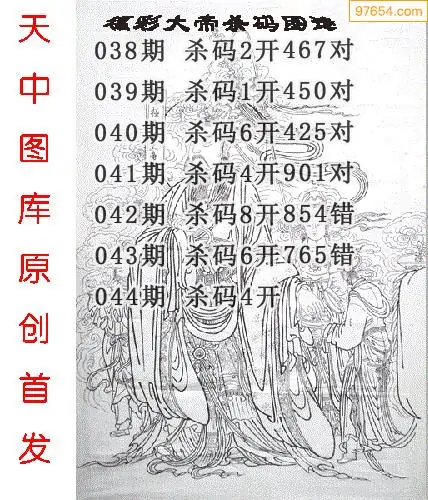 97654.com
福彩大帝杀码图
038期 杀码2开467对
039期 杀码1开450对
040期 杀码6开425对
041期 杀码4开901对
042期 杀码8开854错
043期 杀码6开765错
044期 杀码4开
天中图库原创首发